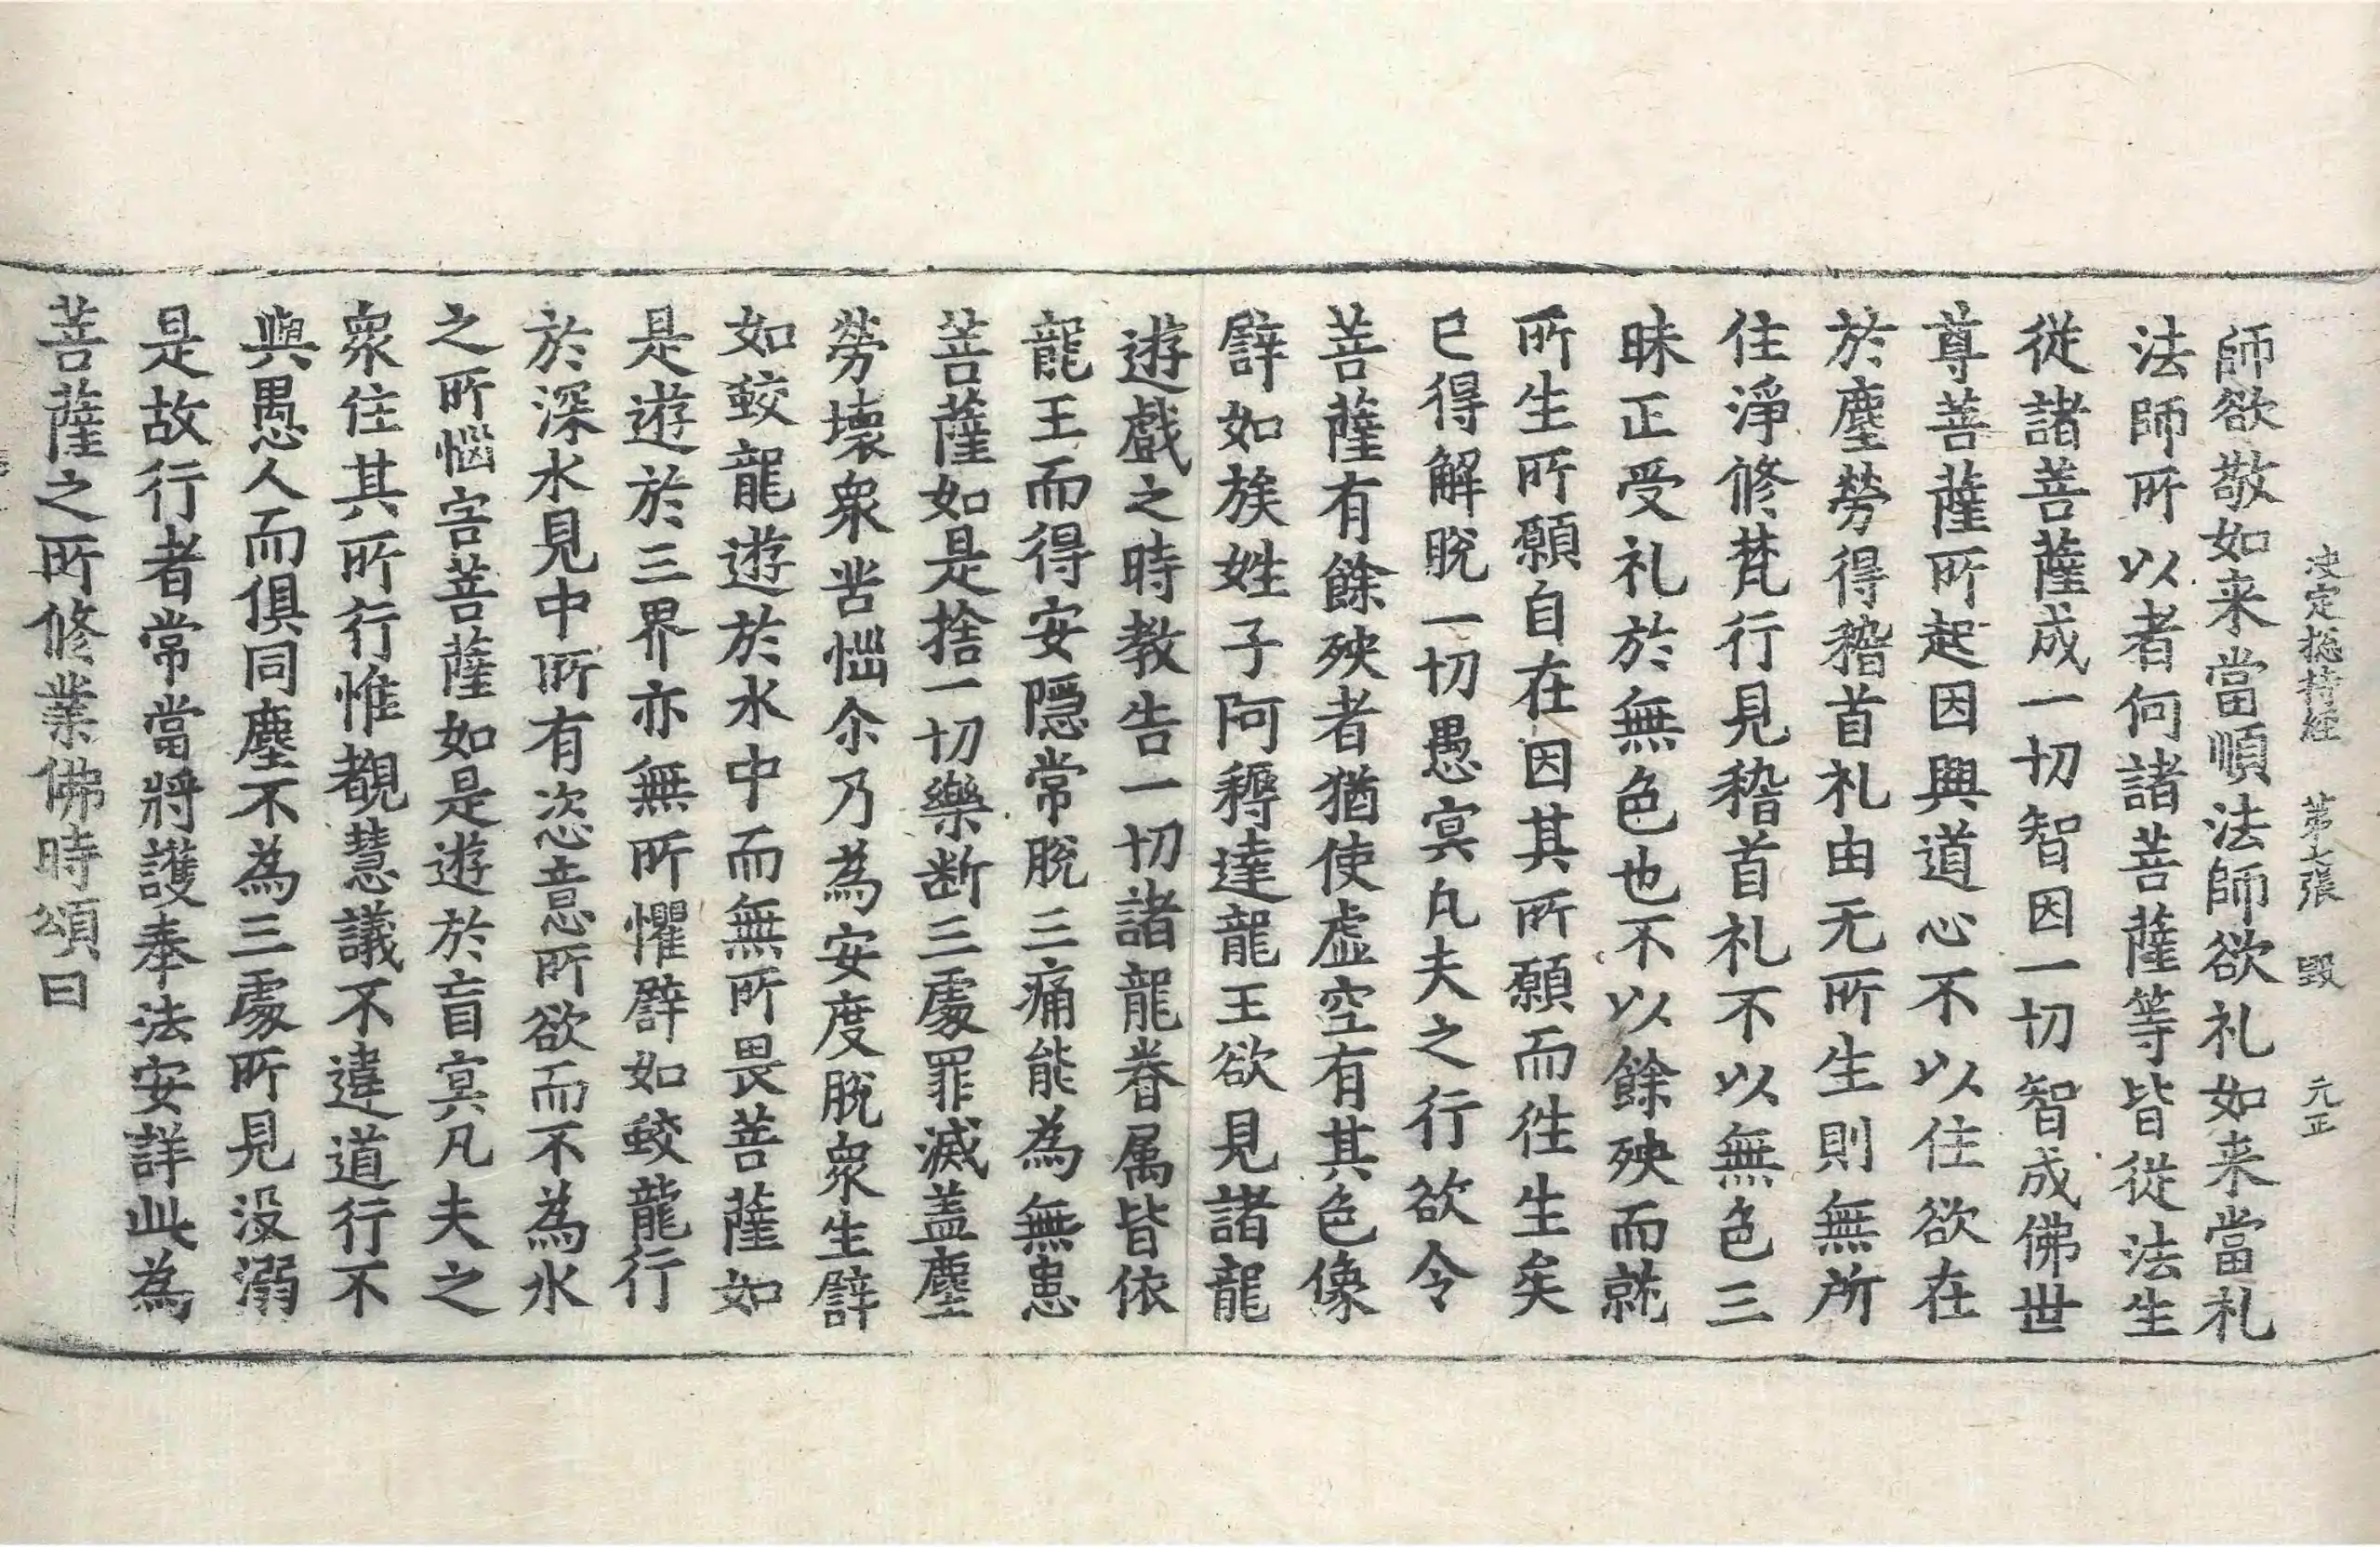 決定揔持經 第七張 毀 元正
師欲敬如来當順法師欲礼如来當礼
法師所以者何諸菩薩等皆從法生
從諸菩薩成一切智因一切智成佛世
尊菩薩所起因興道心不以住欲在
於塵勞得稽首礼由无所生則無所
住淨修梵行見稽首礼不以無色三
昧正受礼於無色也不以餘殃而就
所生所願自在因其所願而徃生矣
已得解脫一切愚冥凡夫之行欲令
菩薩有餘殃者猶使虛空有其色像
譬如族姓子阿耨達龍王欲見諸龍
遊戲之時教告一切諸龍眷属皆依
龍王而得安隱常脫三痛能為無恚
菩薩如是捨一切樂断三處罪滅蓋塵
勞壞衆苦惱尒乃為安度脫衆生譬
如蛟龍遊於水中而無所畏菩薩如
是遊於三界亦無所懼譬如蛟龍行
於深水見中所有恣意所欲而不為水
之所惱害菩薩如是遊於盲冥凡夫之
衆住其所行惟覩慧議不違道行不
與愚人而俱同塵不為三處所見没溺
是故行者常當將護奉法安詳此為
菩薩之所修業佛時頌曰